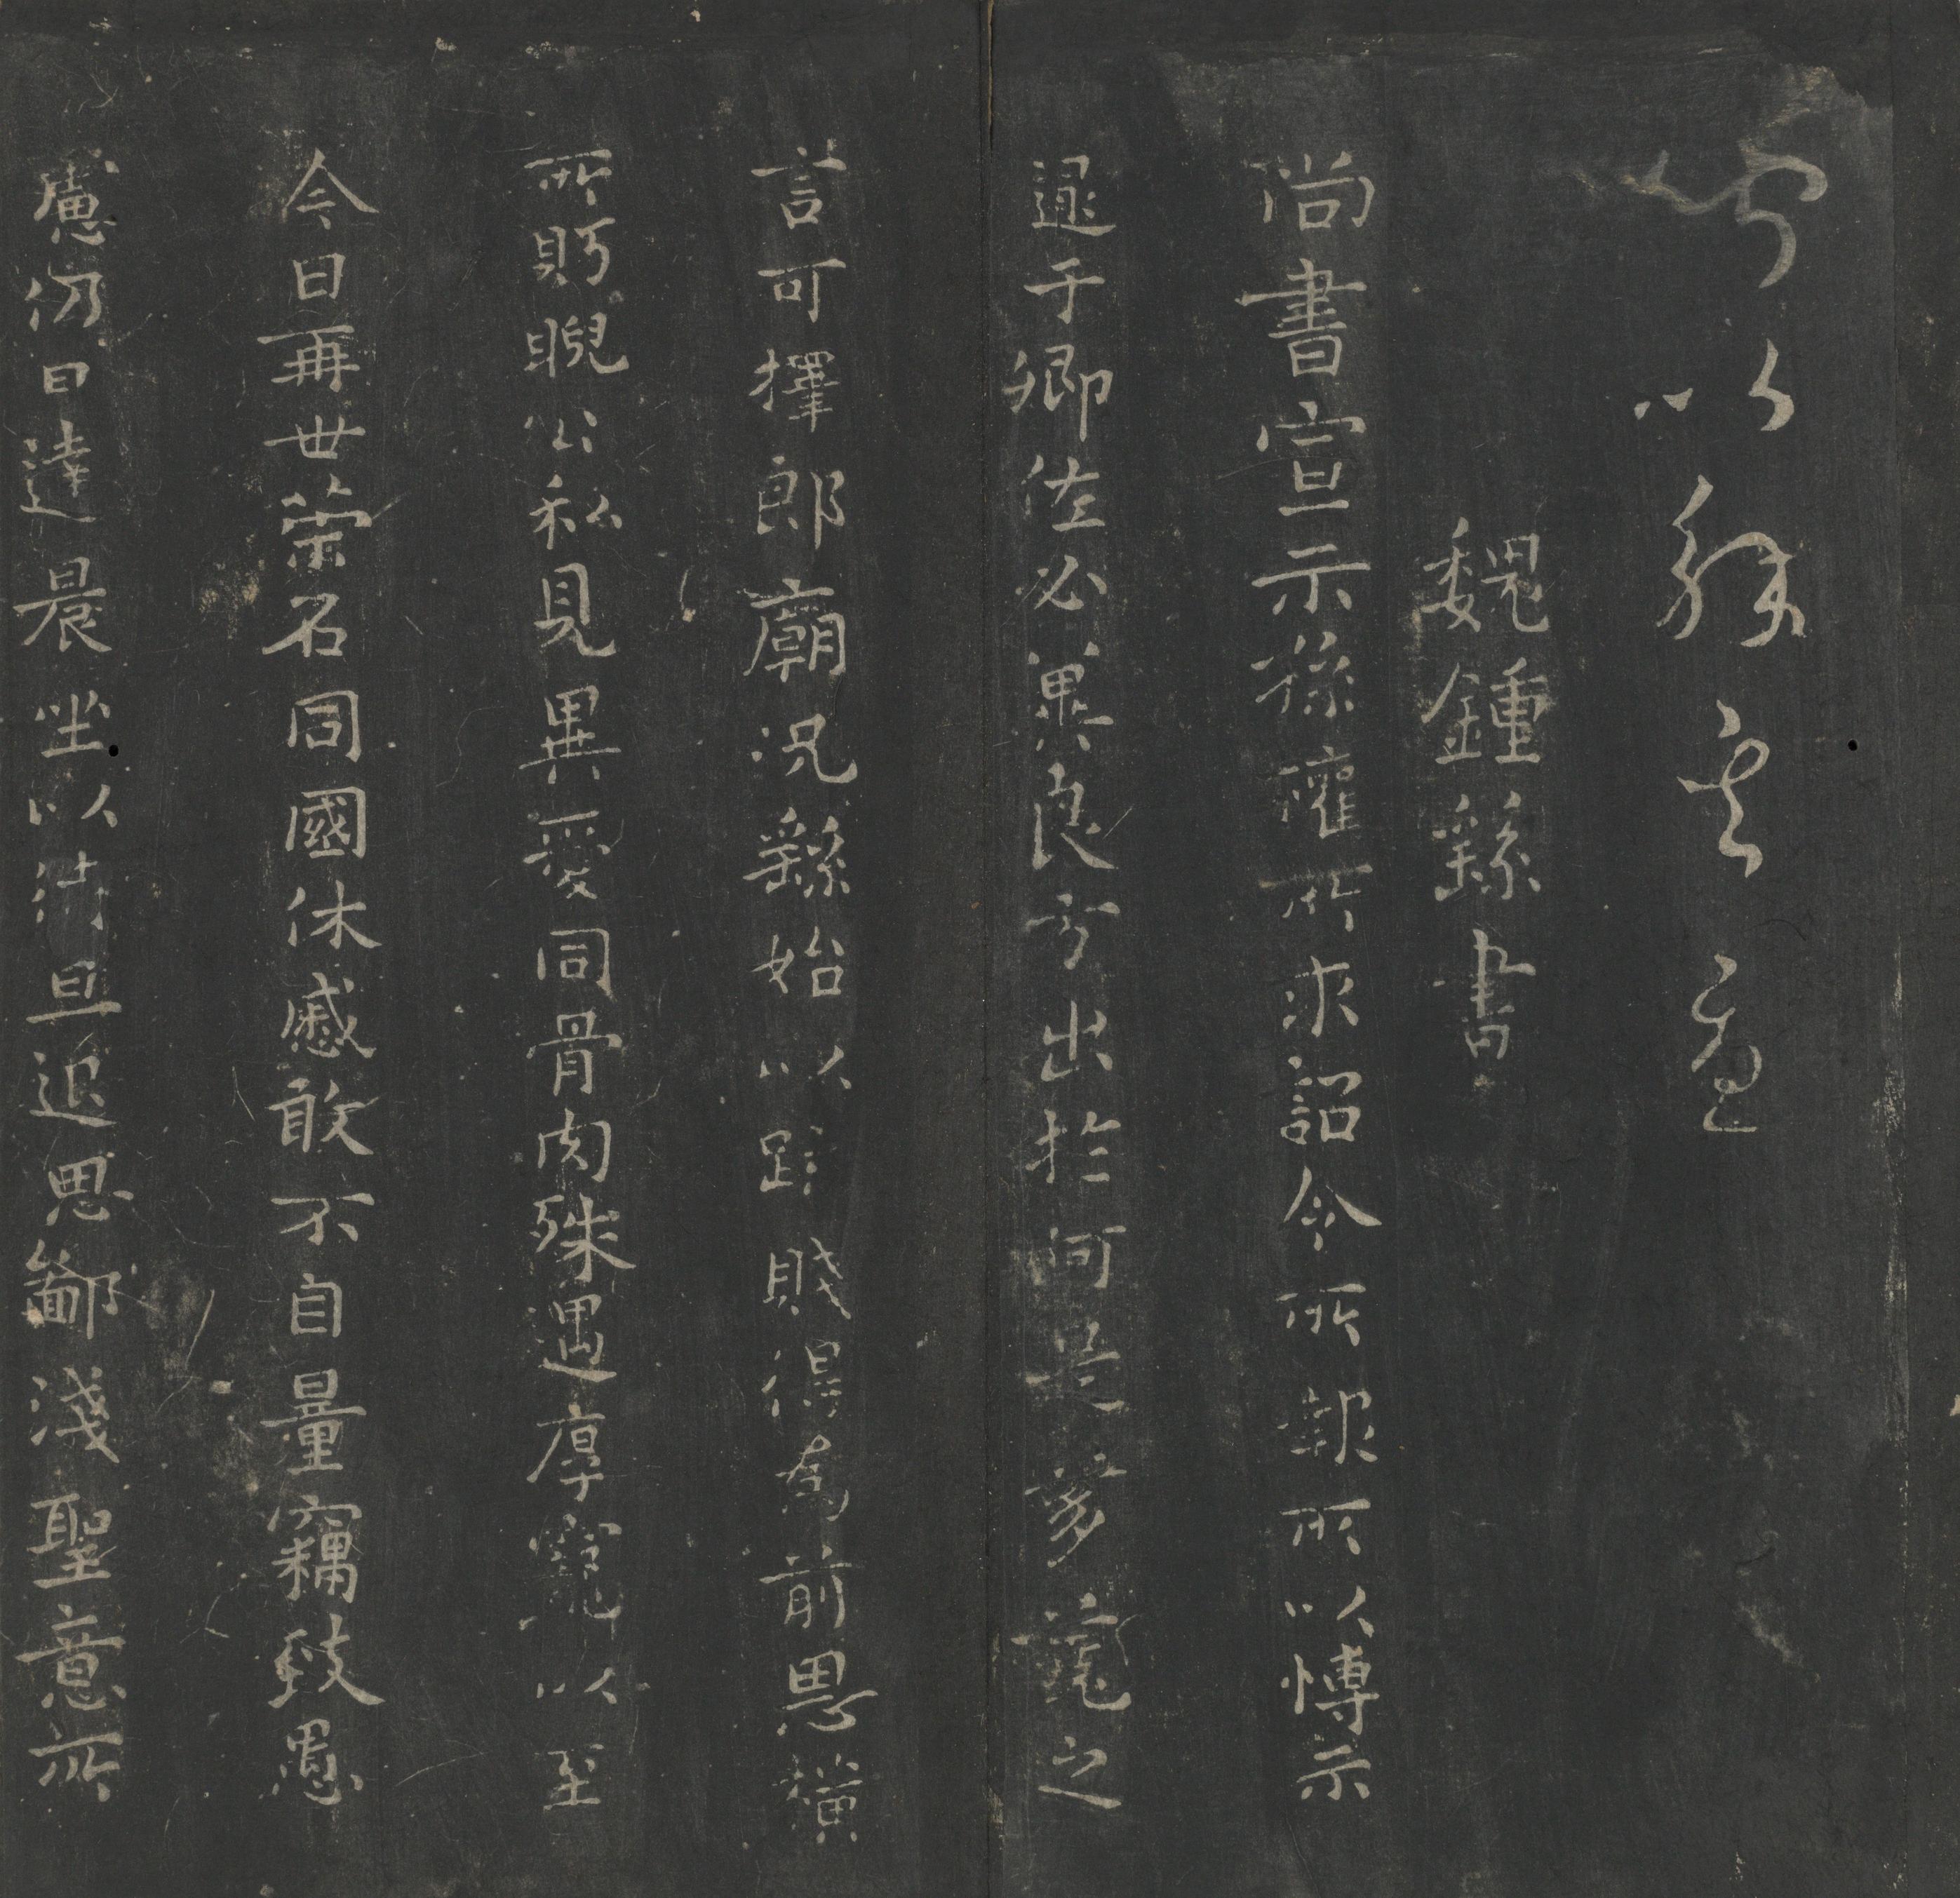 以
魏鍾繇書
尚書宣示孫權所求詔令所報所以愽示
逮于卿佐必冀良方出於阿是芻蕘之
言可擇郎廟況繇始以疎賤得為前恩橫
所眄睨公私見異愛同骨肉殊遇厚寵以至
今日再世榮名同國休慼敢不自量竊致愚
慮仍日達晨坐以待旦退思鄙淺聖意所